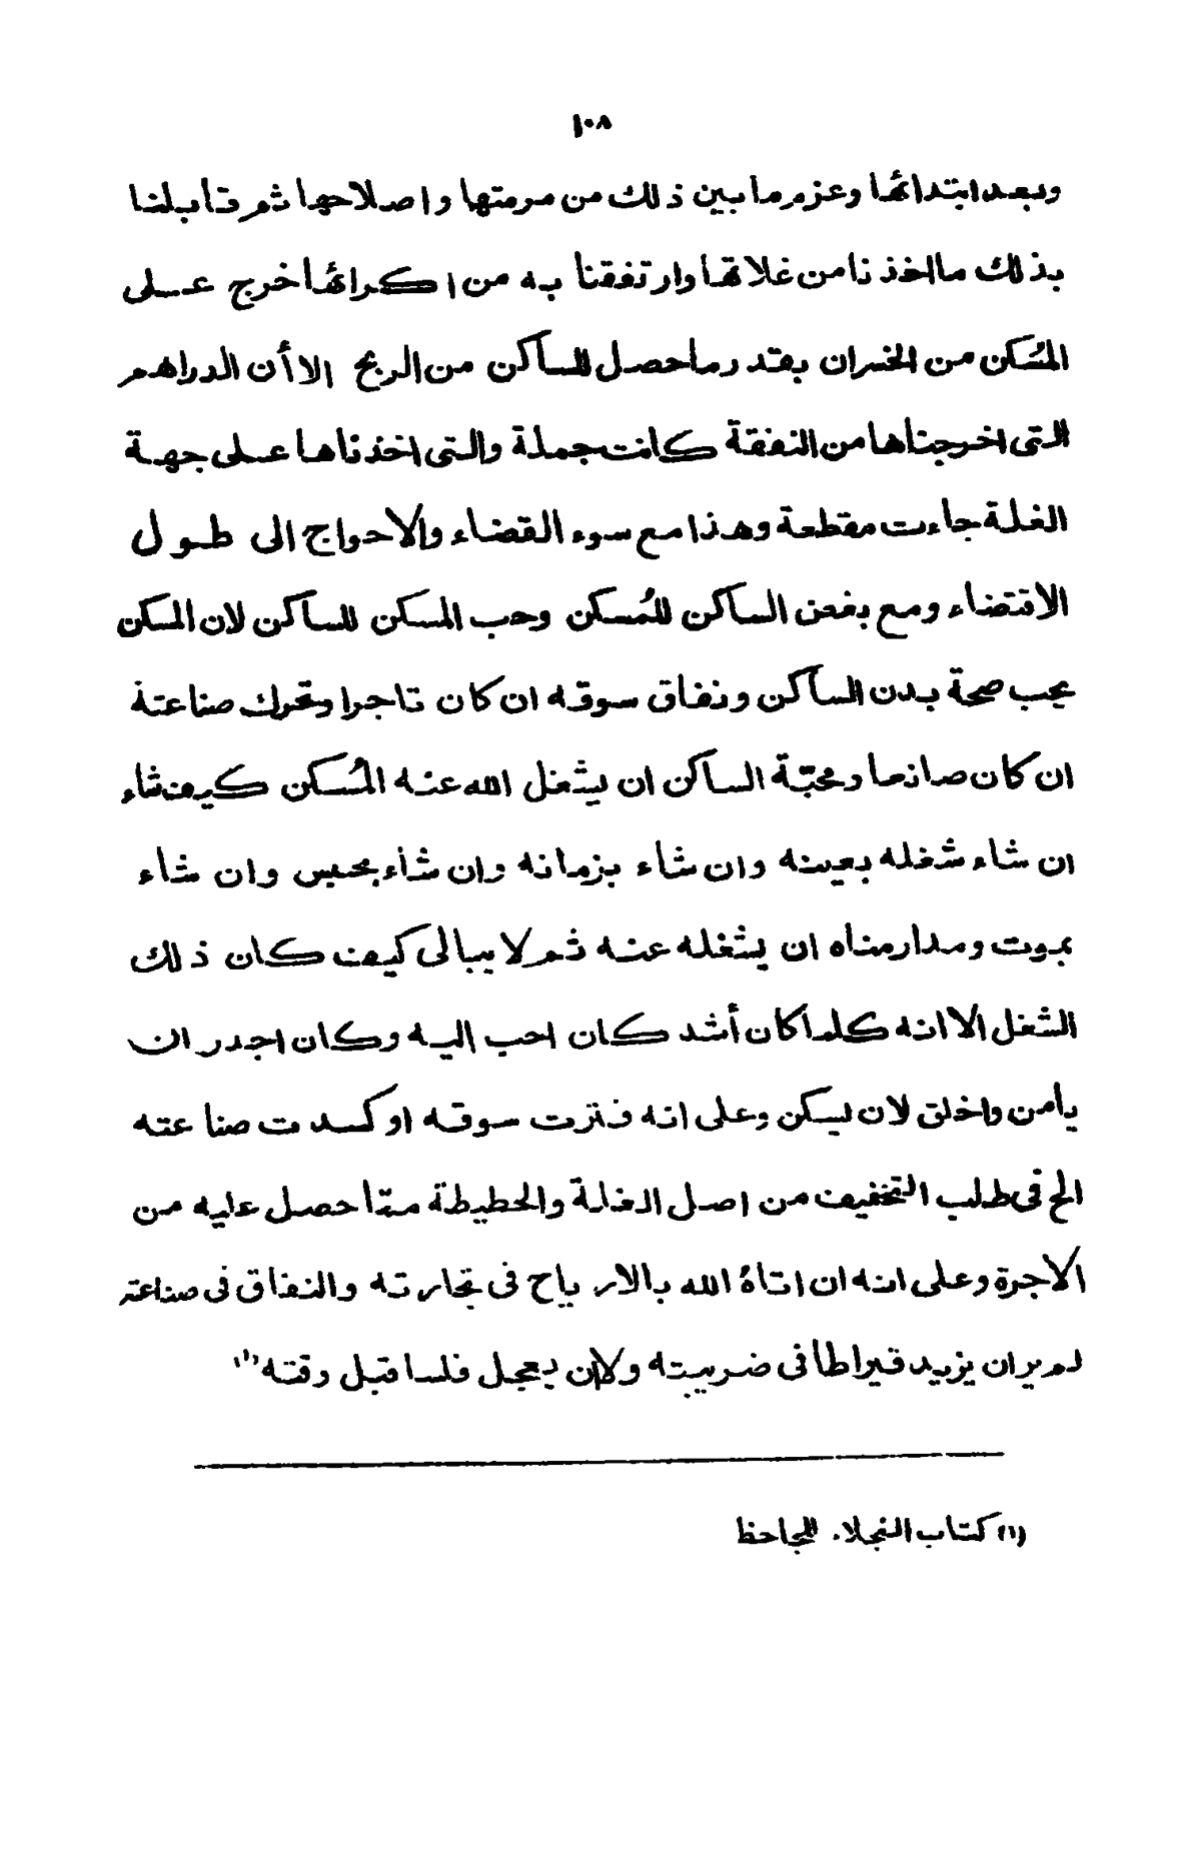 ١٠٨
وبعد ابتدائها وغرم ما بين ذلك من مرمتها واصلاحها ثم قابلنا
بذلك ما اخذنا من غلاتها وارتفقنا به من اكرائها خرج على
المُسكن من الخسران بقدر ما حصل للساكن من الربح الا أن الدراهم
التى اخرجناها من النفقة كانت جملة والتى اخذناها على جهة
الغلة جاءت مقطعة وهذا مع سوء القضاء والاحواج الى طول
الاقتضاء ومع بغض الساكن للمُسكن وحب المسكن للساكن لان المسكن
يحب صحة بدن الساكن ونفاق سوقه ان كان تاجرا وتحرك صناعتة
ان كان صانعا ومحبّة الساكن ان يشغل الله عنه المُسكن كيف شاء
ان شاء شغله بعينه وان شاء بزمانه وان شاء بحبس وان شاء
بموت ومدار مناه ان يشغله عنه ثم لا يبالى كيف كان ذلك
الشغل الا انه كلما كان أشد كان احب اليه وكان اجدر ان
يأمن واخلق لان يسكن وعلى انه فترت سوقه او كسدت صناعته
الح فى طلب التخفيف من اصل الغلة والحطيطة ممّا حصل عليه من
الاجرة وعلى انه ان اتاهُ الله بالارباح فى تجارته والنفاق فى صناعته
لم ير ان يزيد قيراطا فى ضريبته ولا ان يعجل فلسا قبل وقته (١)
(١) كتاب البخلاء للجاحظ